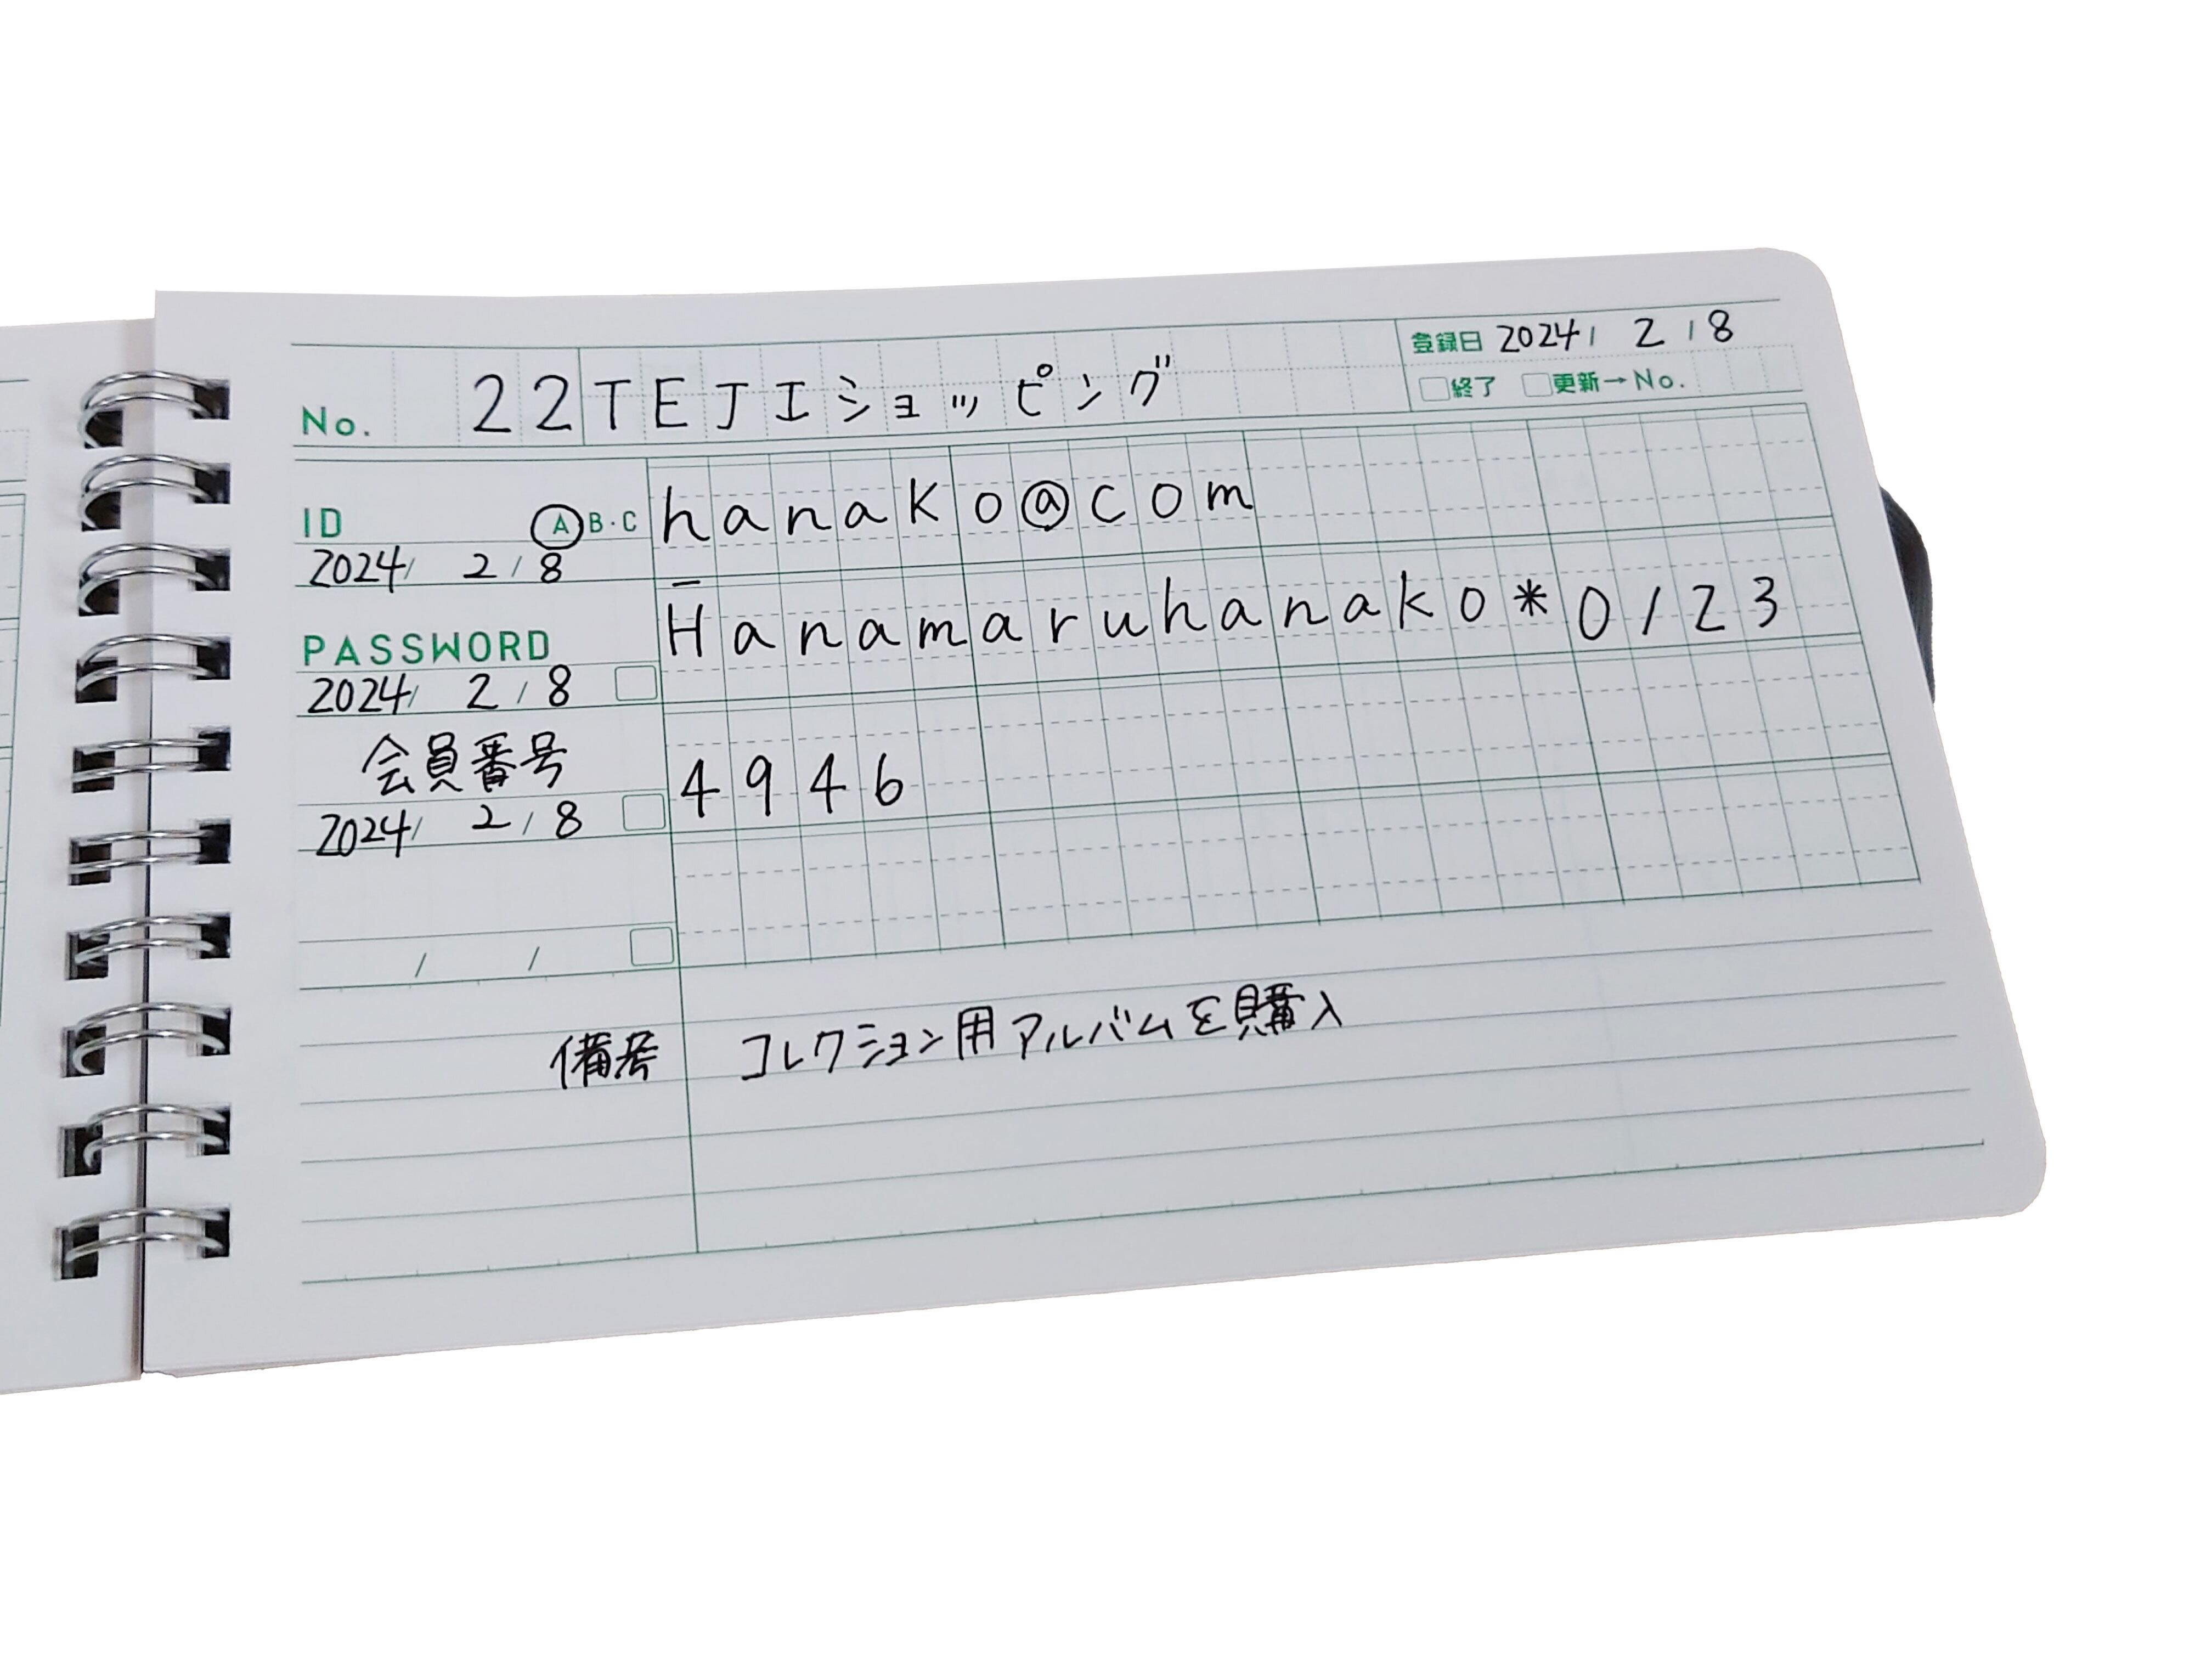 No. 22 TEJIショッピング 登録日 2024/ 2/8
終了 更新→No.
ID A B・C hanako@com
2024/ 2/8
PASSWORD Hanamaruhanako*0123
2024/ 2/8
会員番号 4946
2024/ 2/8
/ /
備考 コレクション用アルバムを購入